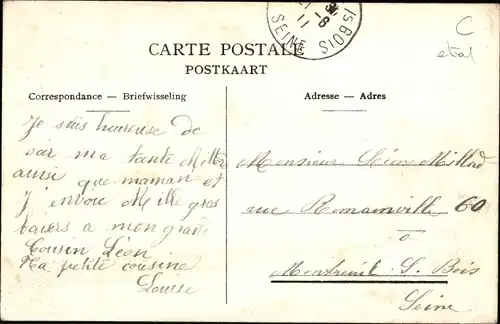 C
etat
21 - 8
11
SEINE
S/S BOIS
CARTE POSTALE
POSTKAART
Correspondance — Briefwisseling
Adresse — Adres
Je suis heureuse de
voir ma tante
ausi que maman et
j'envoie Mille gros
baisers a mon grand
Cousin Léon
Ta petite cousine
Louise
Monsieur Léon
rue Romainville 60
à
Montreuil S. Bois
Seine